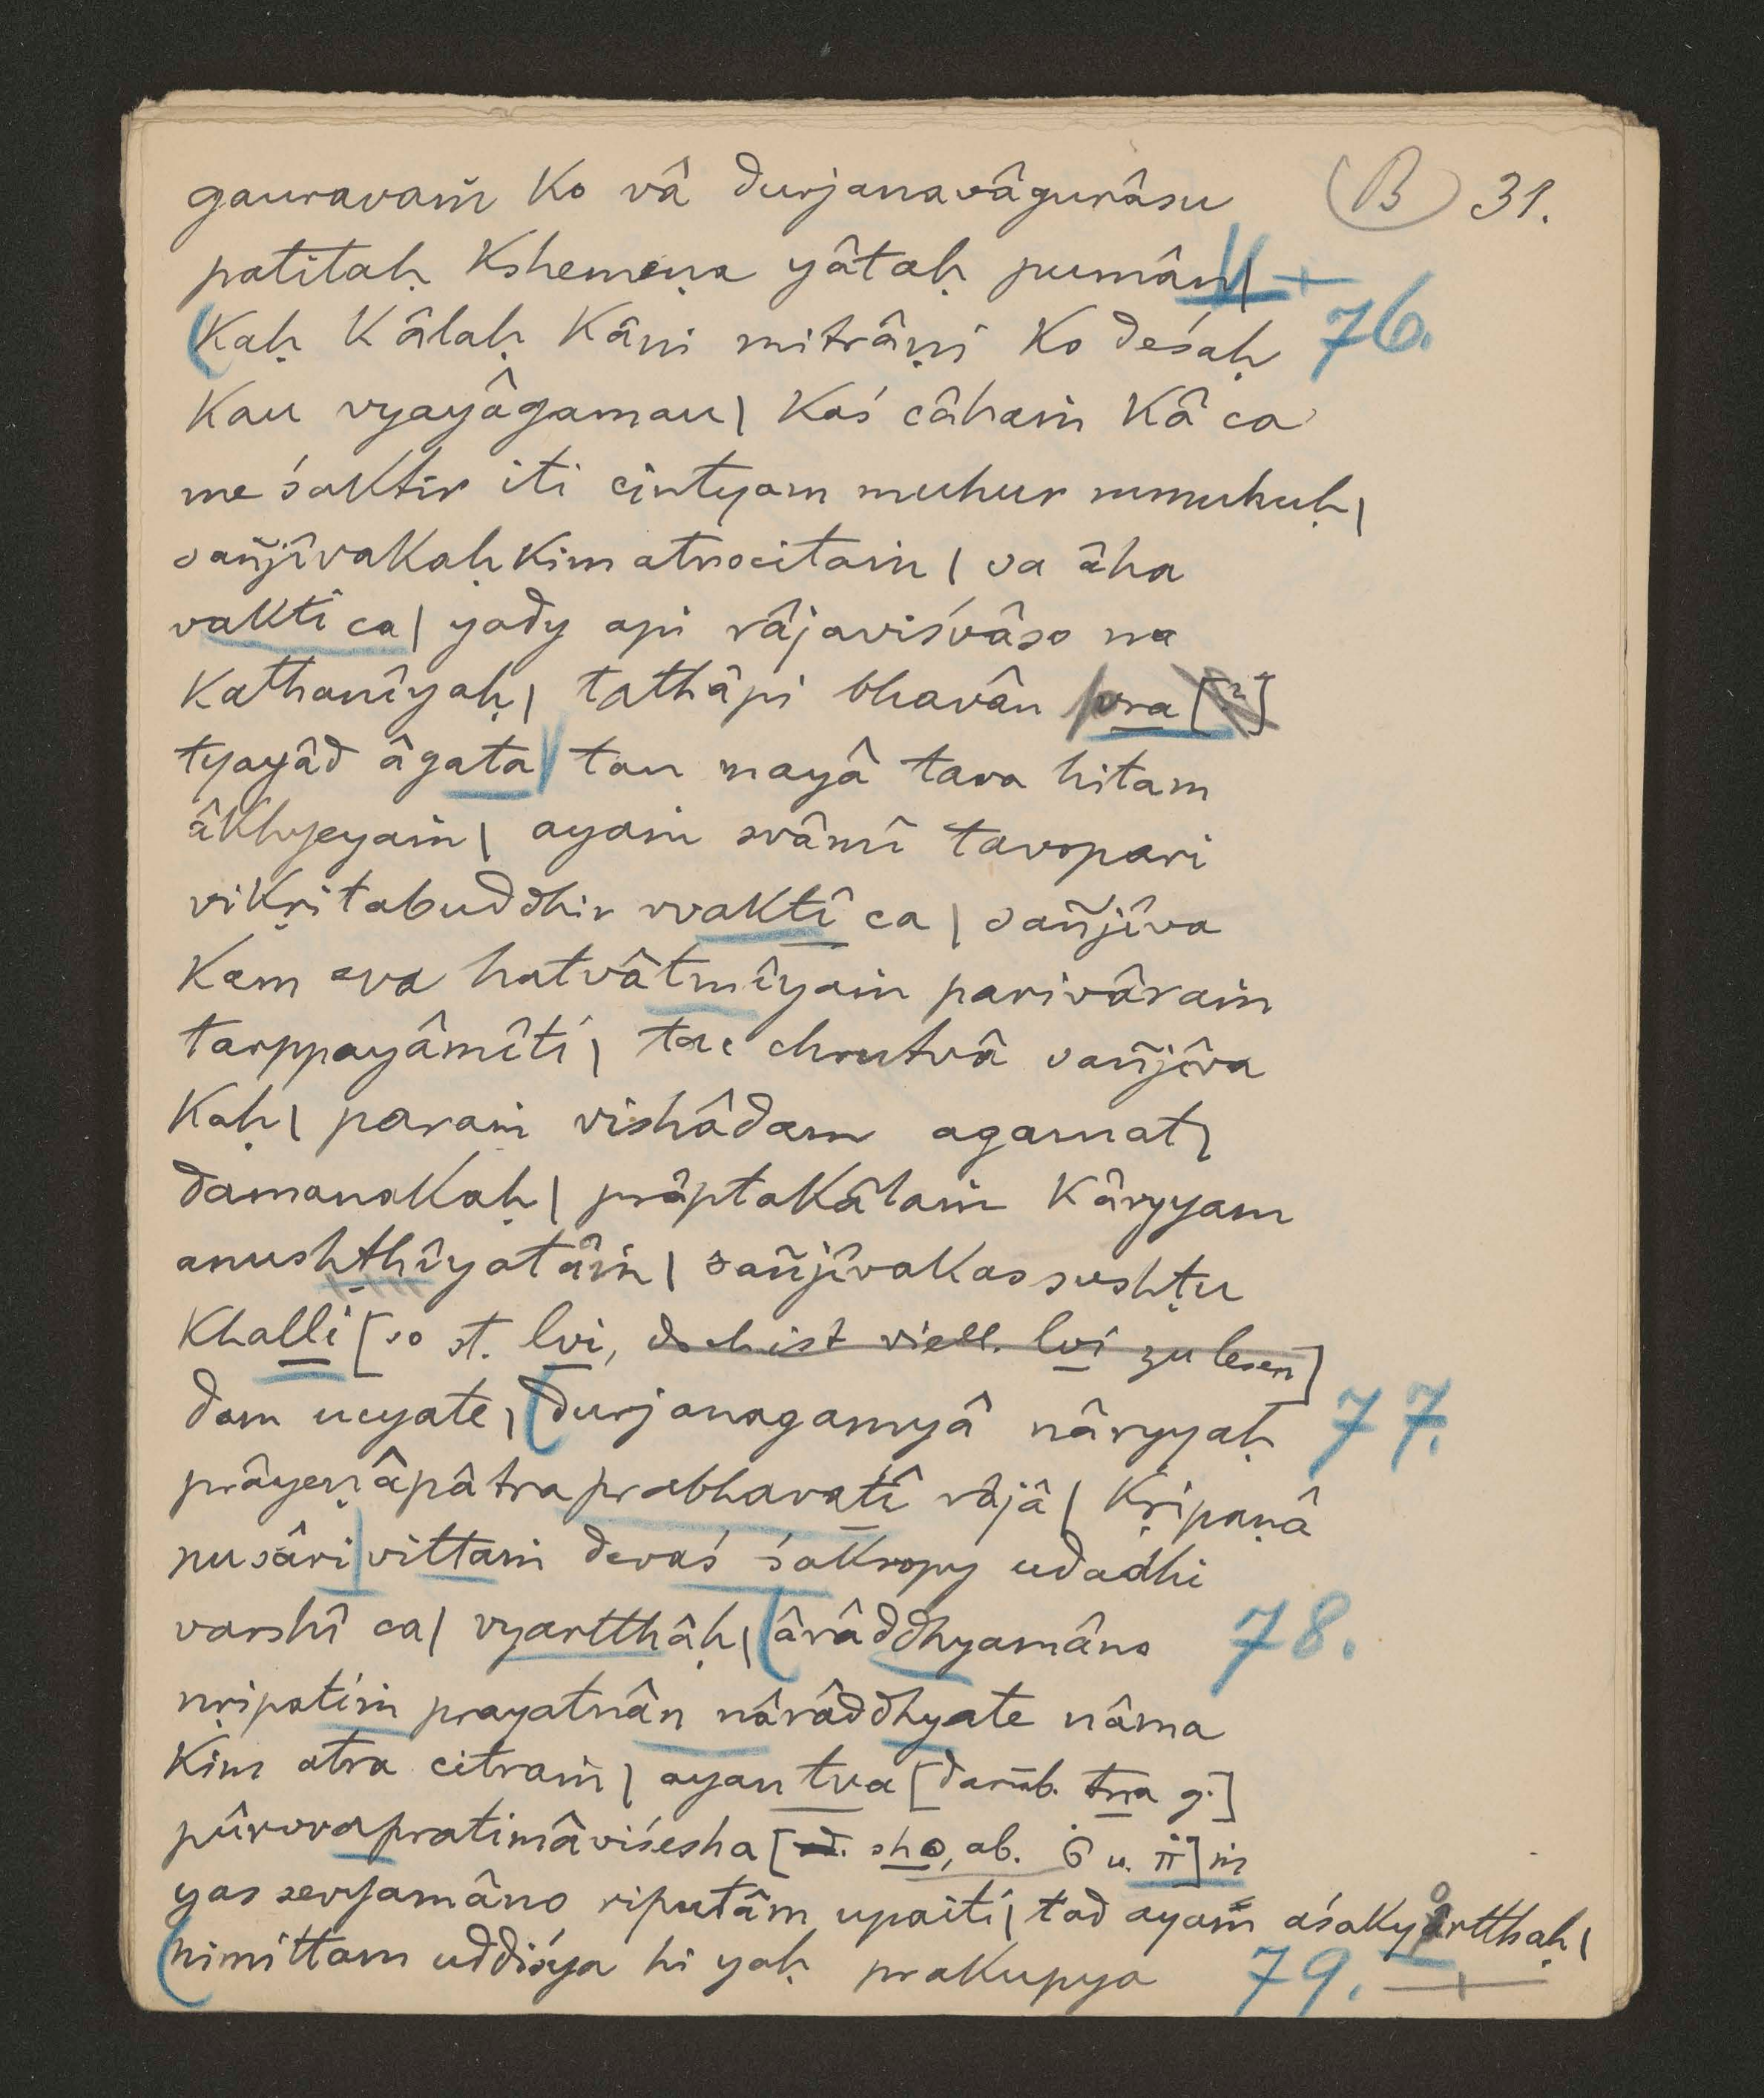 gauravaṁ ko vâ durjanavâgurâsu (B) 31.
patitaḥ kshemeṇa yâtaḥ pumân| +
(kaḥ kâlaḥ kâni mitrâṇi ko deśaḥ 76.
kau vyayâgamau| kaś câhaṁ kâ ca
me śaktir iti cintyam muhur mmuhuḥ|
sañjîvakaḥ kim atrocitaṁ| sa âha
vakti ca| yady api râjaviśvâso na
kathanîyaḥ| tathâpi bhavân pra [?]
tyayâd âgata| tan mayâ tava hitam
âkhyeyaṁ| ayaṁ svâmî tavopari
vikṛitabuddhir vvaktî ca| sañjîva
kam eva hatvâtmîyaṁ parivâraṁ
tarppayâmîti| tac chrutvâ sañjîva
kaḥ| paraṁ vishâdam agamat|
damanakaḥ| prâptakâlaṁ kâryyam
anushṭhîyatâṁ| sañjîvakas sushṭu
khalli [so st. lvi, doch ist viell. lvi zu lesen]
dam ucyate| (durjanagamyâ nâryyaḥ 77.
prâyeṇâpâtraprabhavatî râjâ| kṛipaṇâ
nusâri|vittaṁ devaś śakropy udadhi
varshî ca| vyartthâḥ| (ârâddhyamâno 78.
nṛipatiṁ prayatnân nârâddhyate nâma
kim atra citraṁ| ayan tva [darüb. tra g.]
pûrvvapratimâviśesha [d. sho, ab. ૅ u. ṫṫ] ṁ
yas sevyamâno riputâm upaiti| tad ayaṁ aśakyârtthaḥ|
(nimittam uddiśya hi yaḥ prakupya 79. +